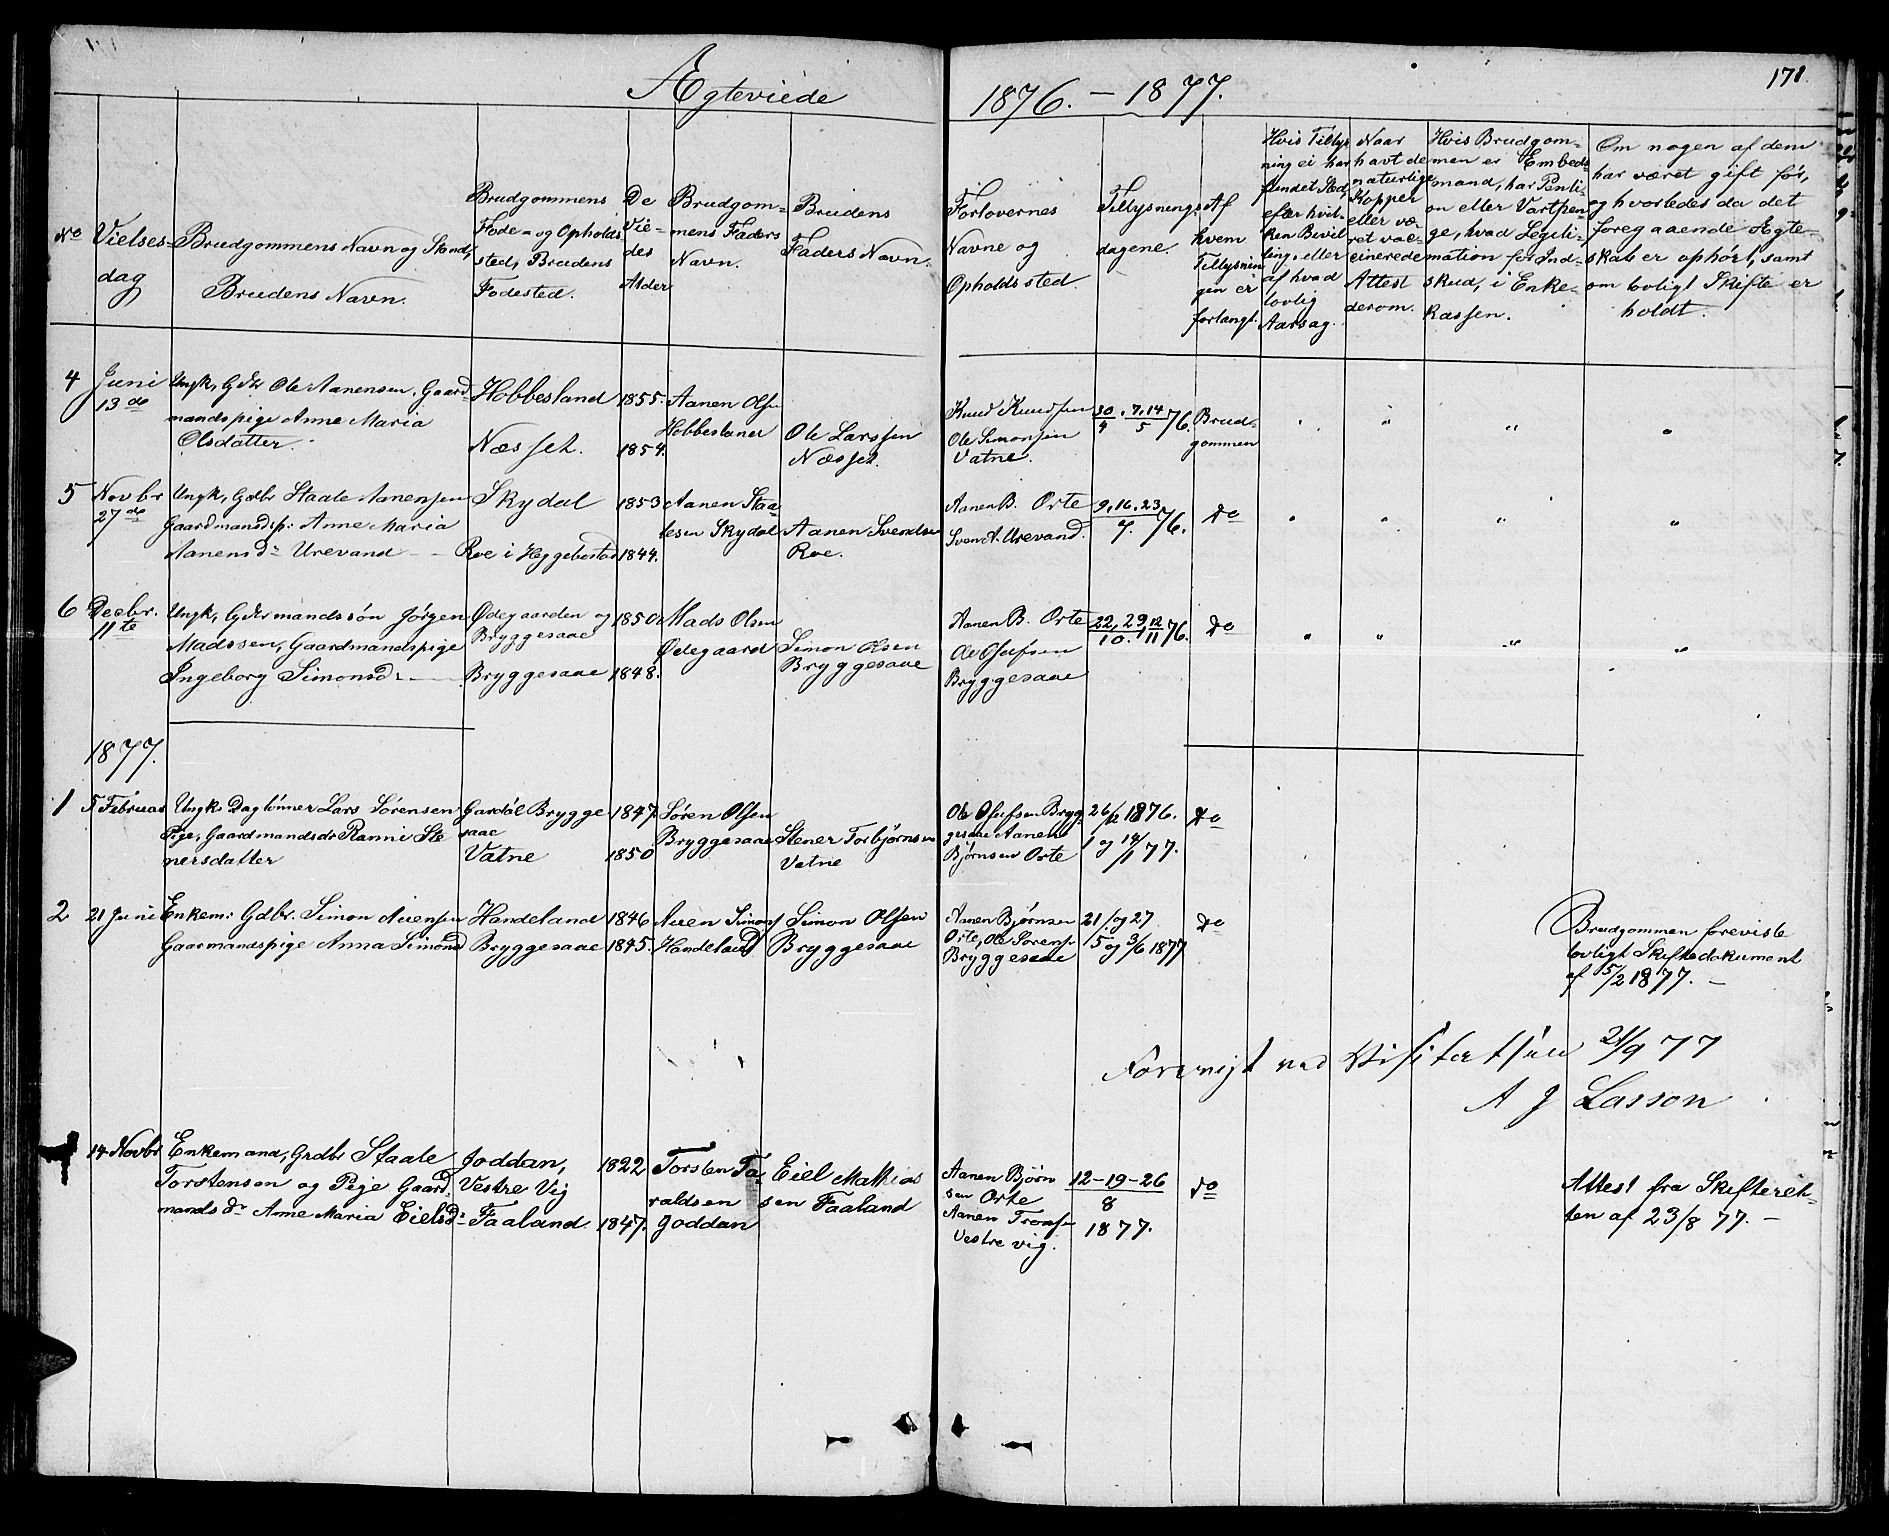 Ægteviede
1876. – 1877.
171.
No
Vielses-
dag
Brudgommens Navn og Stand,
Brudens Navn.
Brudgommens
Føde- og Opholds
sted, Brudens
Fødested.
De
Vie-
des
Alder
Brudgom-
mens Faders
Navn.
Brudens
Faders Navn.
Forlovernes
Navne og
Opholdssted.
Tillysnings-
dagene.
Af
hvem
Tillysnin
gen er
forlangt.
Hvis Tillys
ning ei har
fundet Sted,
efter hvil-
ken Bevil
ling eller
af hvad
lovlig
Aarsag.
Naar
havt de
naturlige
Kopper
eller væ-
ret vac-
cinerede
Attest
derom.
Hvis Brudgom-
men er Embeds
mand, har Penti-
on eller Vartpen-
ge, hvad Legiti-
mation for Ind-
skud, i Enke-
kassen.
Om nogen af dem
har været gift før,
og hvorledes da det
foregaaende Ægte-
skab er ophørt, samt
om lovligt Skifte er
holdt.
4
Juni
13de
Ungk, Gdbr Ole Aanensen, Gaard-
mandspige Anne Maria
Olsdatter.
Hobbesland
Næsset.
1855.
1854.
Aanen Olsen
Hobbeslaner
Ole Larssen
Næsset.
Knud Knudsen
Ole Simonsen
Vatne.
30/4. 7, 14/5 76.
Brud-
gommen
5
Novbr
27de
Ungk, Gdbr Staale Aanensen
Gaardmandsp: Anne Maria
Aanensdr Urevand
Skydal
Roe i Heggebostad
1853
1844.
Aanen Staa-
lesen Skydal
Aanen Svendsen
Roe.
Aanen B. Orte
Sven A. Urevand.
9, 16, 23/7. 76.
do
6
Decbr.
11te
Ungk, Gdbrmandssøn Jørgen
Madssen, Gaardmandspige
Ingeborg Simonsdr
Ødegaarden og
Bryggesaae
Bryggesaae
1850.
1848.
Mads Olsen
Ødegaard
Simon Olsen
Bryggesaae
Aanen B. Orte
Ole Olufsen
Bryggesaae
22, 29/10. 12/11 76.
do
1877.
1
5 Februar
Ungk. Daglönner Lars Sörensen
Pige, Gaardmandsdr Ranni Ste
nersdatter
Gardöl Brygge
saae
Vatne
1847.
1850
Søren Olsen
Bryggesaae
Stener Torbjørnsen
Vatne
Ole Olufsen Bryg-
gesaae Aanen
Bjørnsen Orte
26/12 1876.
1 og 14/1 77.
do
2
21 Juni
Enkem: Gdbr. Simon Auensen
Gaarmandspige Anna Simonsd
Handeland
Bryggesaae
1846
1845.
Auen Simons
Handeland
Simon Olsen
Bryggesaae
Aanen Bjørnsen
Orte, Ole Sörens
Bryggesaae
21/ og 27
/5 og 3/6 1877
do
Brudgommen foreviste
lovligt Skiftedokument
af 5/2 1877. –
Forevist ved Visitatsen 21/9 77
A J Lasson
14 Novbr
Enkemand, Grdbr Staale
Torstensen og Pige Gaard
mandsdr Anne Maria Eielsdr
Joddan,
Vestre Vig
Faaland.
1822
1847.
Torsten Ta-
raldsen
Joddan
Eiel Mathias
sen Faaland
Aanen Bjørn
sen Orte
Aanen Tronsen
Vestre vig.
12–19–26
8
1877.
do
Attest fra Skifteret-
ten af 23/8 77. –